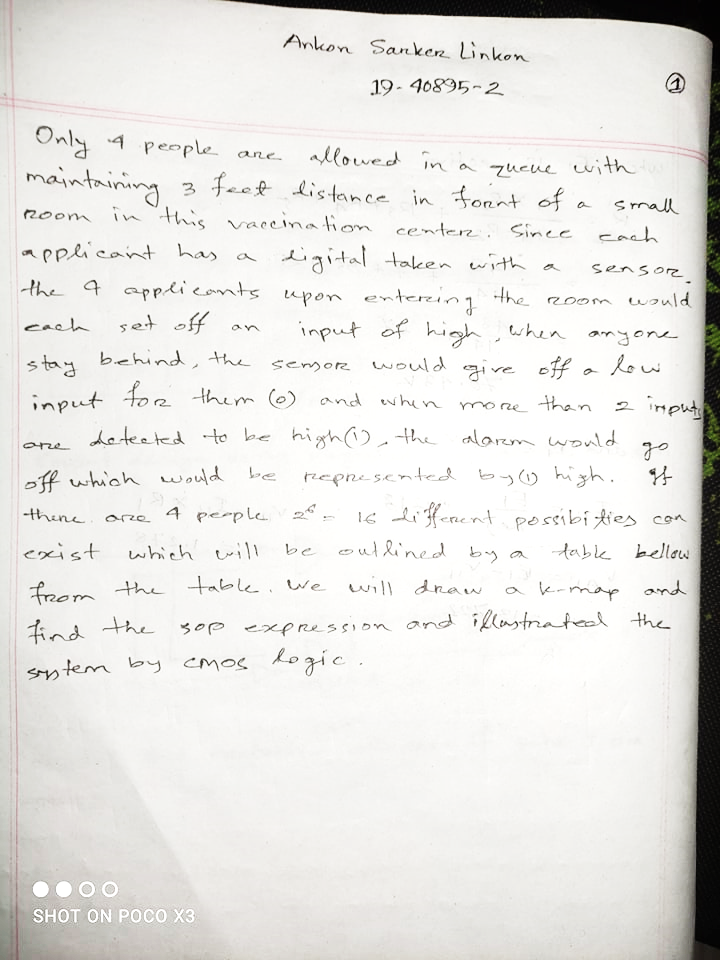 Ankon Sarker Linkon
19-40895-2
1
Only 4 people are allowed in a queue with
maintaining 3 feet distance in fornt of a small
room in this vaccination center. Since each
applicant has a digital taken with a sensor.
the 4 applicants upon entering the room would
each set off an input of high, when anyone
stay behind, the sensor would give off a low
input for them (0) and when more than 2 inputs
are detected to be high(1), the alarm would go
off which would be represented by (1) high. If
there are 4 people = 16 different possibities can
exist which will be outlined by a table bellow
from the table. We will draw a k-map and
find the sop expression and illustrated the
system by cmos logic.
SHOT ON POCO X3